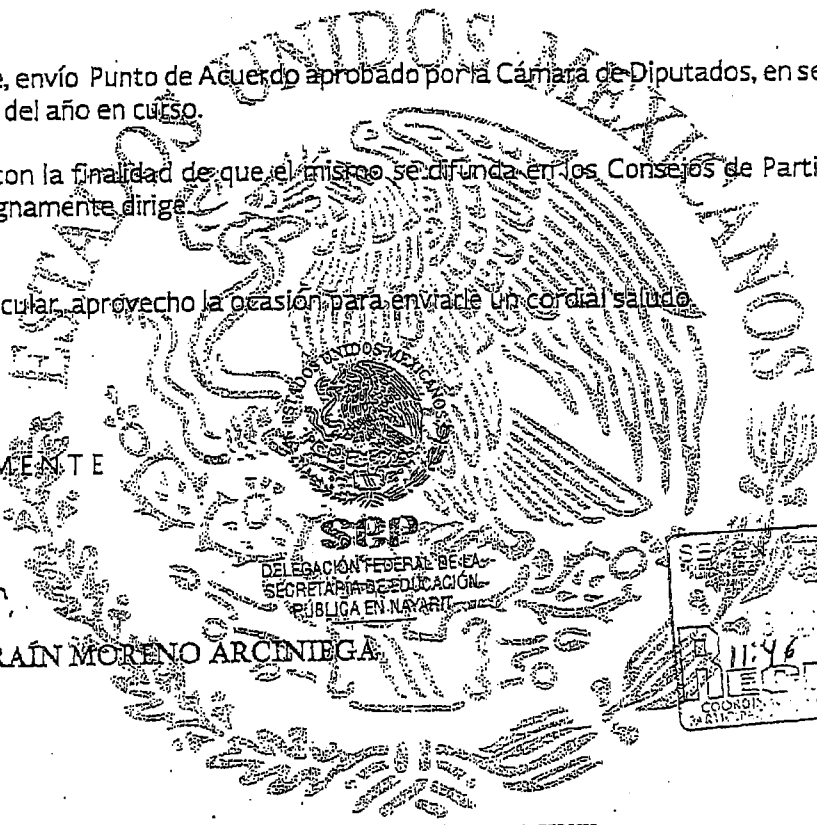 e, envío Punto de Acuerdo aprobado por la Cámara de Diputados, en se
del año en curso.
con la finalidad de que el mismo se difunda en los Consejos de Parti
gnamente dirige.
cular, aprovecho la ocasión para enviarle un cordial saludo.
ESTADOS UNIDOS MEXICANOS
ESTADOS UNIDOS MEXICANOS
MENTE
SEP
DELEGACIÓN FEDERAL DE LA
SECRETARÍA DE EDUCACIÓN
PÚBLICA EN NAYARIT
RAÍN MORENO ARCINIEGA
11:46